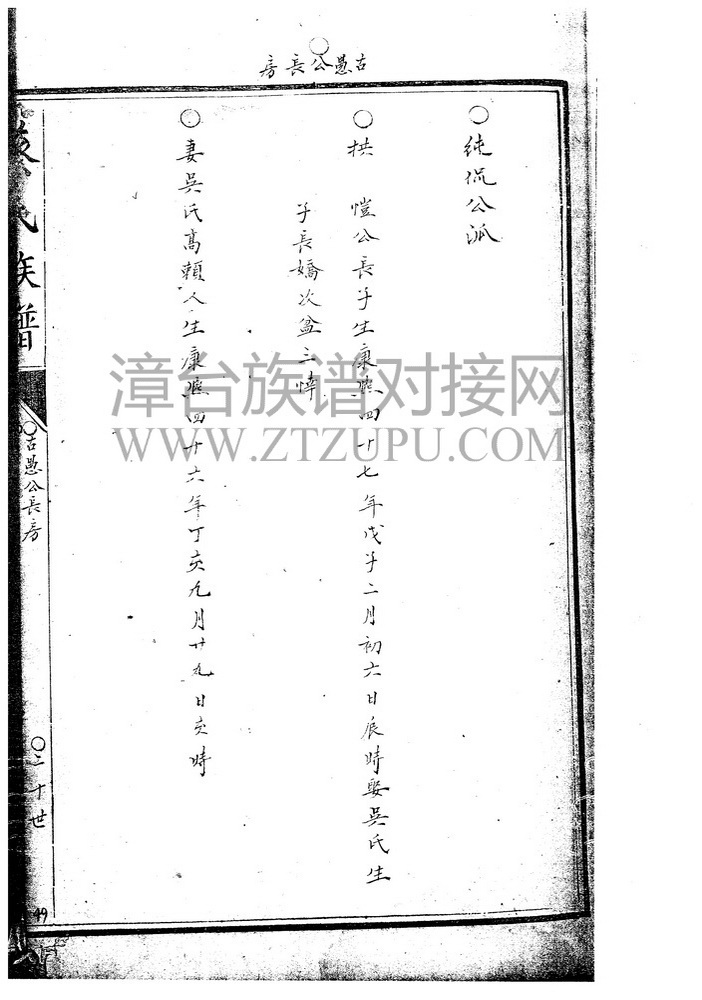 古愚公長房
○純侃公派
○拱 愷公長子生康熙四十七年戊子二月初六日辰時娶吳氏生
子長嬌次盆三悻
○妻吳氏高賴人生康熙四十六年丁亥九月廿九日亥時
氏族譜
○古愚公長房
○二十世
49
漳台族谱对接网
WWW.ZTZUPU.COM